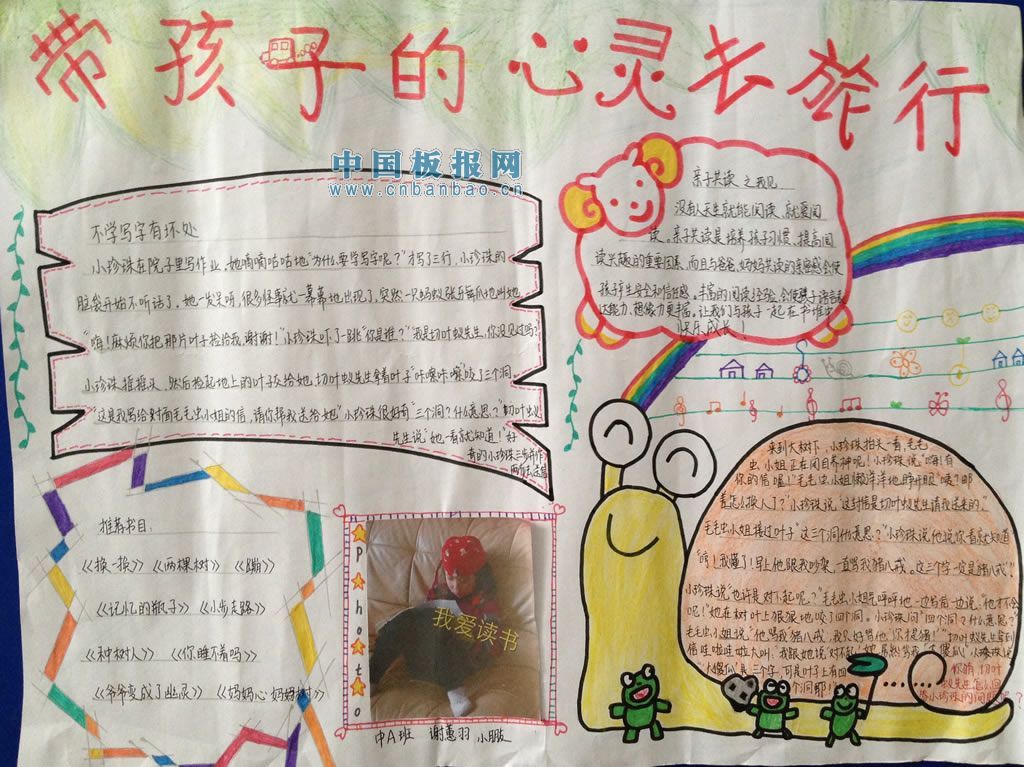 带孩子的心灵去旅行
中国板报网
www.cnbanbao.cn
不学写字有坏处
小珍珠在院子里写作业,她嘀嘀咕咕地"为什么要学写字呢?"才写了三行,小珍珠的
脑袋开始不听话了,她一发呆呀,很多怪事就一幕幕地出现了,突然一只蚂蚁张牙舞爪地叫她
"嗨!麻烦你把那片叶子捡给我,谢谢!"小珍珠吓了一跳"你是谁?""我是切叶蚁先生,你没见过吗?"
小珍珠摇摇头,然后捡起地上的叶子交给她,切叶蚁先生拿着叶子"咔嚓咔嚓"咬了三个洞
"这是我写给对面毛毛虫小姐的信,请你帮我送给她"小珍珠很好奇"三个洞?什么意思?"切叶蚁
先生说"她一看就知道!"好
奇的小珍珠三步并作
两步去送信
亲子共读 之我见
没有人天生就能阅读、就爱阅
读。亲子共读是培养孩子习惯、提高阅
读兴趣的重要因素,而且与爸爸、妈妈共读的亲密感会使
孩子产生安全和信任感。丰富的阅读经验,会使孩子语言表
达能力、想像力更丰富。让我们与孩子一起在书堆中
快乐成长!
来到大树下,小珍珠抬头一看,毛毛
虫小姐正在闭目养神呢!小珍珠说"嗨!有
你的信喔!"毛毛虫小姐懒洋洋地睁开眼"咦!那
是怎么换人了?"小珍珠说"这封信是切叶蚁先生请我送来的"
毛毛虫小姐接过叶子"这三个洞什么意思?"小珍珠说他说你一看就知道
"哼!我懂了!早上他跟我吵架,一直骂我猪八戒。这三个字一定是猪八戒"!
小珍珠说"也许是对不起呢?"毛毛虫小姐气呼呼地一边写信一边说:"他才不会
呢!"她在树叶上狠狠地咬了四个洞。小珍珠问"四个洞?什么意思?"
毛毛虫小姐说"他骂我猪八戒,我只好骂他
推荐书目:
《换一换》 《两棵树》 《蹦》
《记忆的瓶子》 《小步走路》
《种树人》 《你睡不着吗》
《爷爷变成了幽灵》 《妈妈心 妈妈树》
photo
我爱读书
中A班 谢蕙羽 小朋友